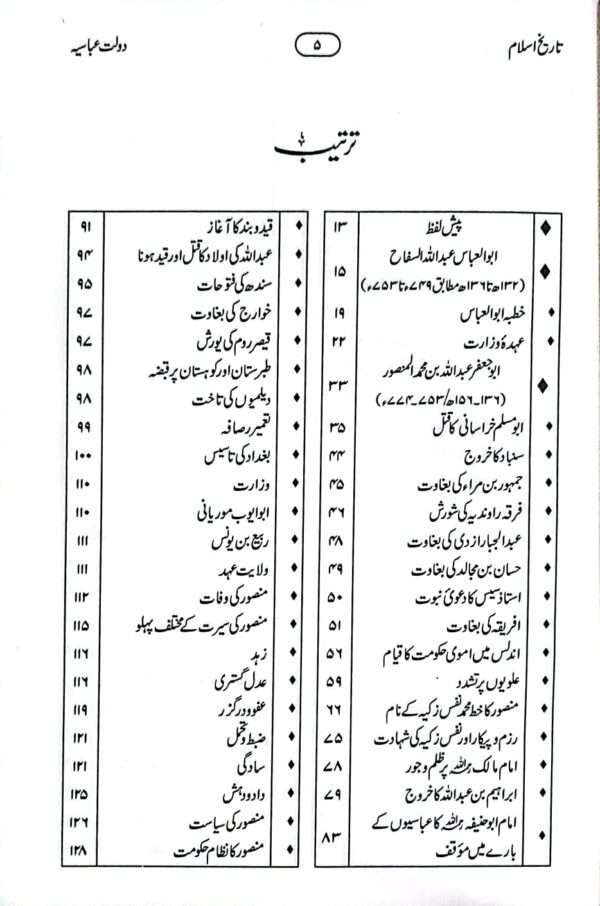 تاریخ اسلام ۵ دولت عباسیہ
ترتیب
پیش لفظ ۱۳
ابوالعباس عبداللہ السفاح
(۱۳۲ھ تا ۱۳۶ھ مطابق ۷۴۹ء تا ۷۵۳ء) ۱۵
خطبہ ابوالعباس ۱۹
عہدۂ وزارت ۲۲
ابوجعفر عبداللہ بن محمد المنصور
(۱۳۶۔۱۵۶ھ/۷۵۳۔۷۷۴ء) ۳۳
ابو مسلم خراسانی کا قتل ۳۵
سنباد کا خروج ۴۴
جمہور بن مراء کی بغاوت ۴۵
فرقہ راوندیہ کی شورش ۴۶
عبدالجبار ازدی کی بغاوت ۴۸
حسان بن مجالد کی بغاوت ۴۹
استاذ سیس کا دعویٰ نبوت ۵۰
افریقہ کی بغاوت ۵۱
اندلس میں اموی حکومت کا قیام ۵۶
علویوں پر تشدد ۵۹
منصور کا خط محمد نفس زکیہ کے نام ۶۶
رزم و پیکار اور نفس زکیہ کی شہادت ۷۵
امام مالک رحمہ اللہ پر ظلم و جور ۷۸
ابراہیم بن عبداللہ کا خروج ۷۹
امام ابوحنیفہ رحمہ اللہ کا عباسیوں کے
بارے میں مؤقف ۸۳
قید و بند کا آغاز ۹۱
عبداللہ کی اولاد کا قتل اور قید ہونا ۹۴
سندھ کی فتوحات ۹۵
خوارج کی بغاوت ۹۷
قیصر روم کی یورش ۹۷
طبرستان اور کوہستان پر قبضہ ۹۸
دیلمیوں کی تاخت ۹۸
تعمیر رصافہ ۹۹
بغداد کی تاسیس ۱۰۰
وزارت ۱۱۰
ابو ایوب موریانی ۱۱۰
ربیع بن یونس ۱۱۱
ولایت عہد ۱۱۱
منصور کی وفات ۱۱۲
منصور کی سیرت کے مختلف پہلو ۱۱۵
زہد ۱۱۶
عدل گستری ۱۱۶
عفو و درگزر ۱۱۹
ضبط و تحمل ۱۲۱
سادگی ۱۲۱
داد و دہش ۱۲۵
منصور کی سیاست ۱۲۶
منصور کا نظام حکومت ۱۲۸